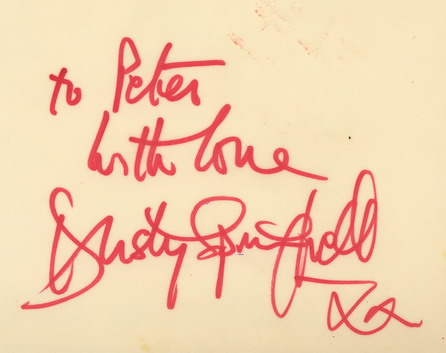 to Peter
With love
Dusty Springfield
xx